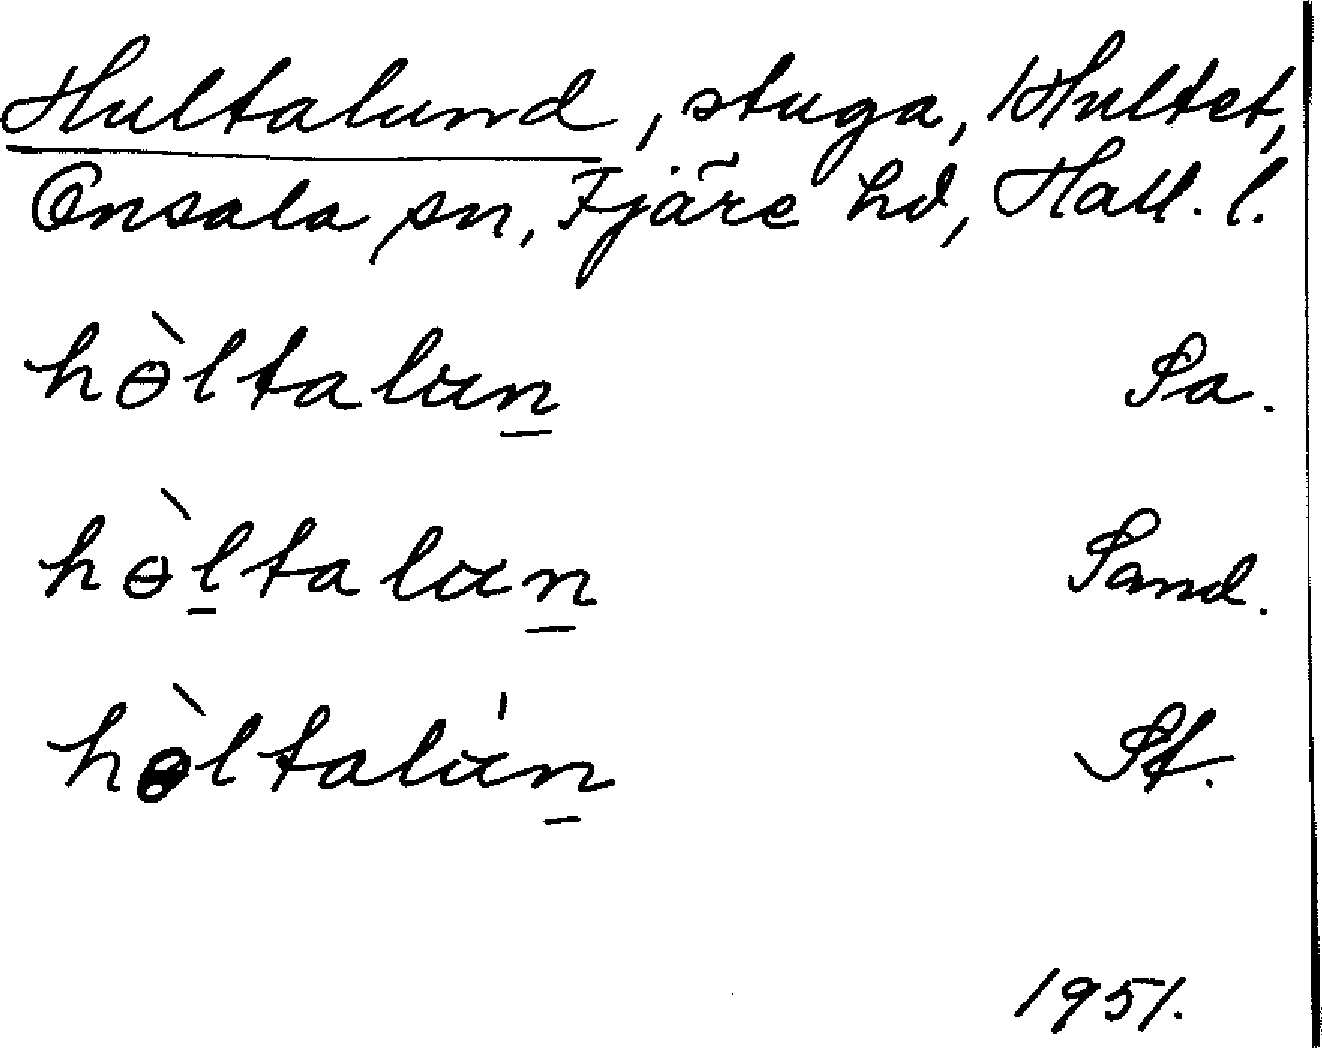 Hultalund, stuga, 1 Hultet,
Onsala sn, Fjäre hd, Hall. l.
hɵ̀ltalun̲ Sa.
hɵ̀l̲talun̲ Sand.
hɵ̀ltalu̍n̲ St.
1951.